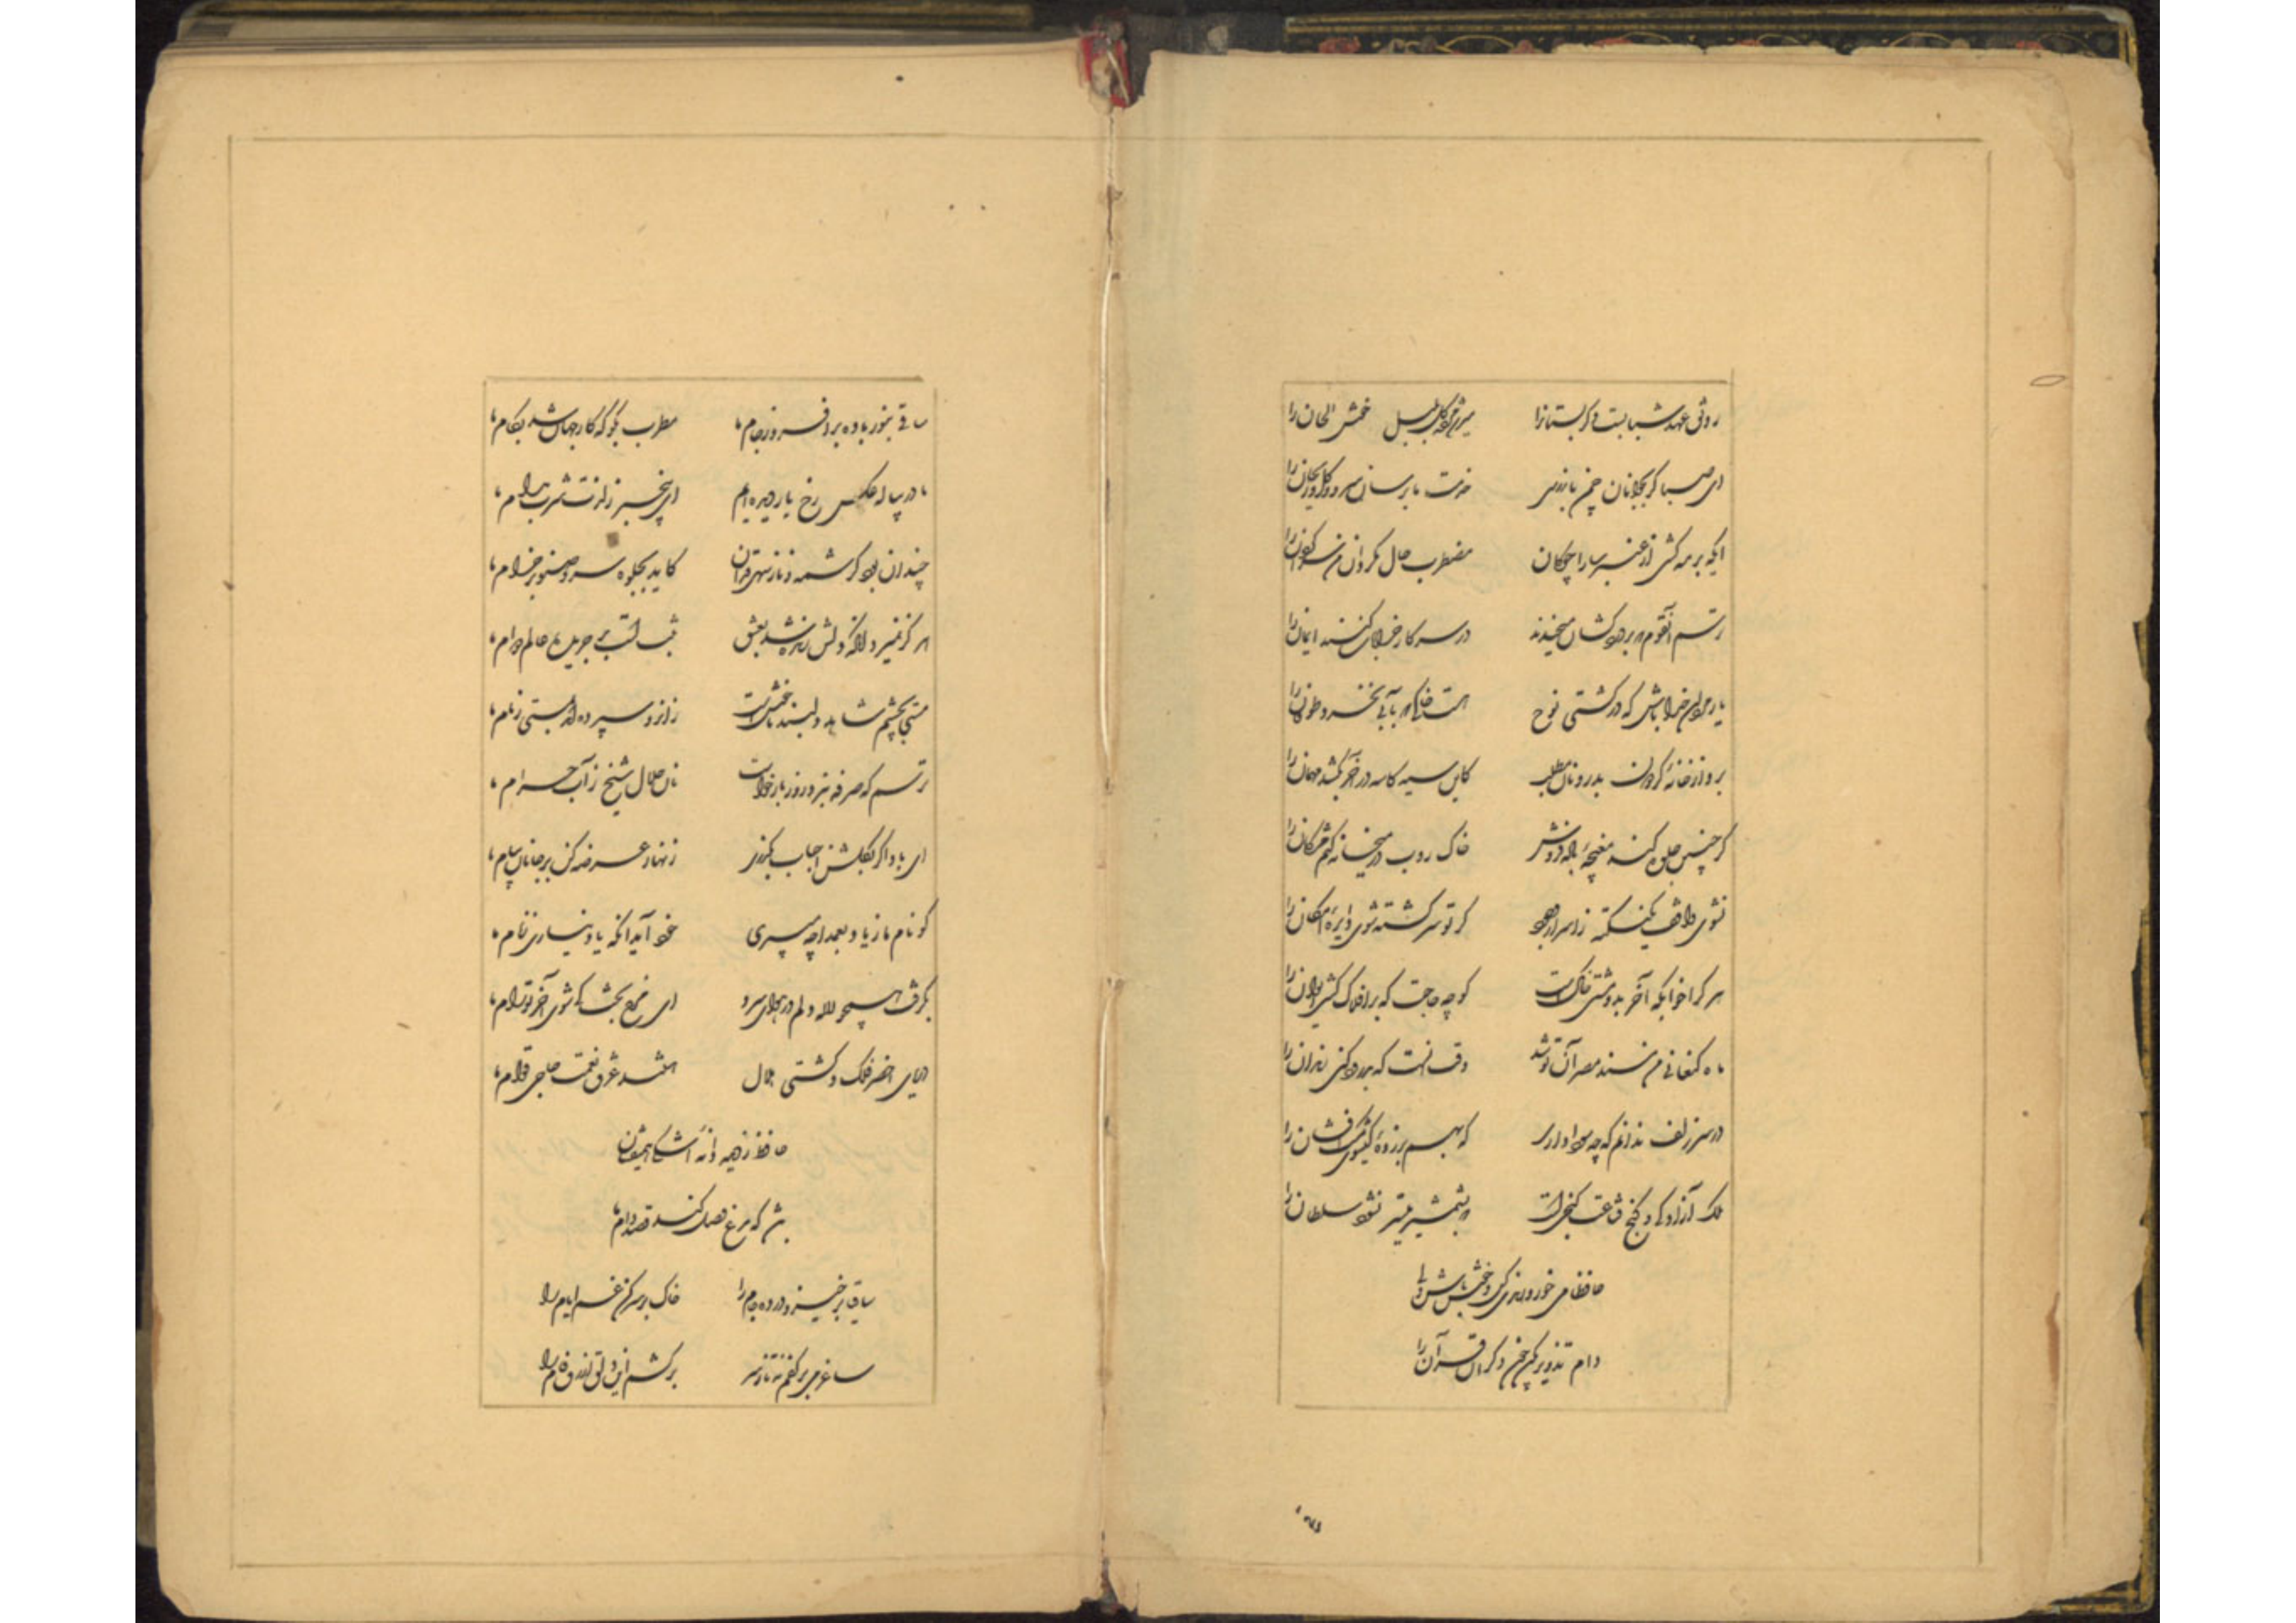 رونق عهد شبابست دگر بستانرا میرسد مژده گل بلبل خوش الحان را
ای صبا گر بجوانان چمن بازرسی خدمت ما برسان سرو و گل و ریحان را
ایکه بر مه کشی از عنبر سارا چوگان مضطرب حال مگردان من سرگردان را
ترسم آنقوم که بر دردکشان میخندند در سر کار خرابات کنند ایمان را
یار مردان خدا باش که در کشتی نوح هست خاکی که بآبی نخرد طوفان را
برو از خانه گردون بدر و نان مطلب کاین سیه کاسه در آخر بکشد مهمان را
گر چنین جلوه کند مغبچه باده فروش خاک روب در میخانه کنم مژگان را
نشوی واقف یک نکته ز اسرار وجود گر تو سرگشته شوی دایره امکان را
هر کرا خوابگه آخر بدو مشتی خاکست گو چه حاجت که بر افلاک کشی ایوان را
ماه کنعانی من مسند مصر آن تو شد وقت آنست که بدرود کنی زندان را
در سر زلف ندانم که چه سودا داری که بهم بر زده گیسوی مشک افشان را
ملک آزادگی و کنج قناعت گنجیست که بشمشیر میسر نشود سلطان را
حافظا می خور و رندی کن و خوش باش ولی
دام تزویر مکن چون دگران قرآن را
ساقی بنور باده برافروز جام ما مطرب بگو که کار جهان شد بکام ما
ما در پیاله عکس رخ یار دیده‌ایم ای بیخبر ز لذت شرب مدام ما
چندان بود کرشمه و ناز سهی قدان کاید بجلوه سرو صنوبر خرام ما
هرگز نمیرد آنکه دلش زنده شد بعشق ثبت است بر جریده عالم دوام ما
مستی بچشم شاهد دلبند ما خوشست زانرو سپرده‌اند بمستی زمام ما
ترسم که صرفه نبرد روز بازخواست نان حلال شیخ ز آب حرام ما
ای باد اگر بگلشن احباب بگذری زنهار عرضه کن بر جانان پیام ما
گو نام ما ز یاد بعمدا چه میبری خود آید آنکه یاد نیاری ز نام ما
بگرفت همچو لاله دلم در هوای سرو ای مرغ بخت کی شوی آخر تو رام ما
دریای اخضر فلک و کشتی هلال هستند غرق نعمت حاجی قوام ما
حافظ ز دیده دانه اشکی همیفشان
باشد که مرغ وصل کند قصد دام ما
ساقیا برخیز و در ده جام را خاک بر سر کن غم ایام را
ساغر می بر کفم نه تا ز سر برکشم این دلق ازرق فام را